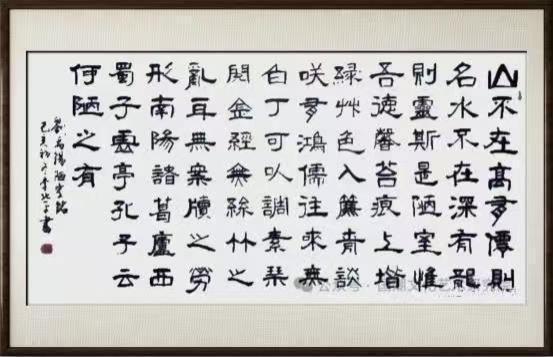 山不在高有僊則
名水不在深有龍
則靈斯是陋室惟
吾徳馨苔痕上堦
緑艸色入簾青談
咲有鴻儒往来無
白丁可以調素琴
閲金經無絲竹之
亂耳無案牘之勞
形南陽諸葛廬西
蜀子雲亭孔子云
何陋之有
劉禹錫陋室銘
己亥初冬李書
公众号